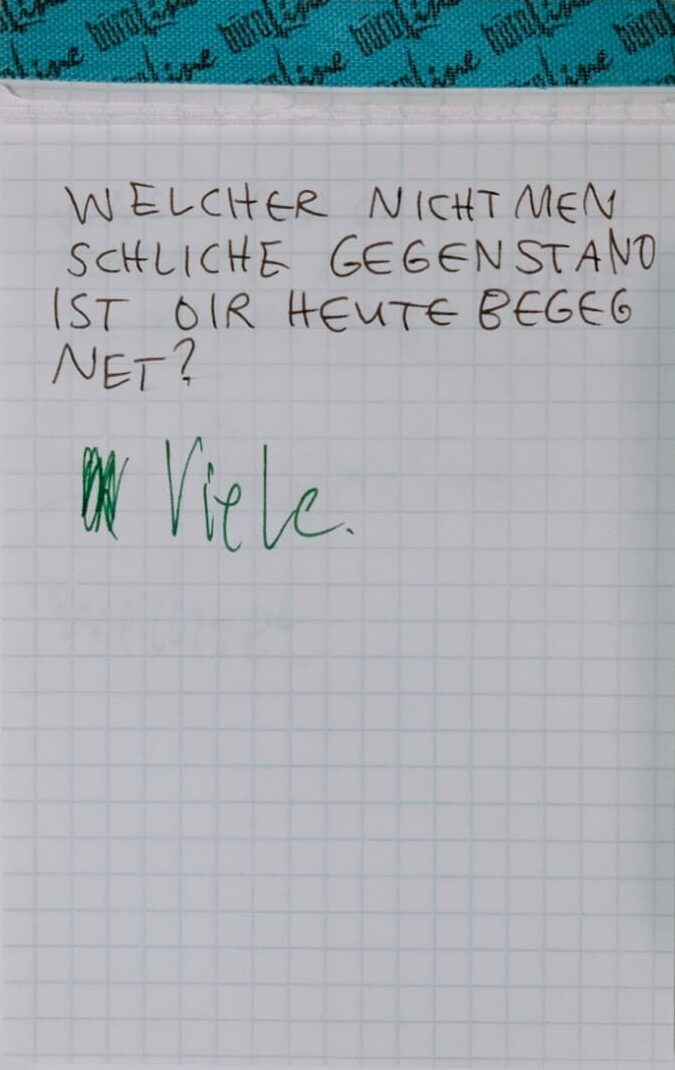 büroLine büroLine büroLine büroLine büroLine
WELCHER NICHT MEN
SCHLICHE GEGENSTAND
IST DIR HEUTE BEGEG
NET?
Viele.